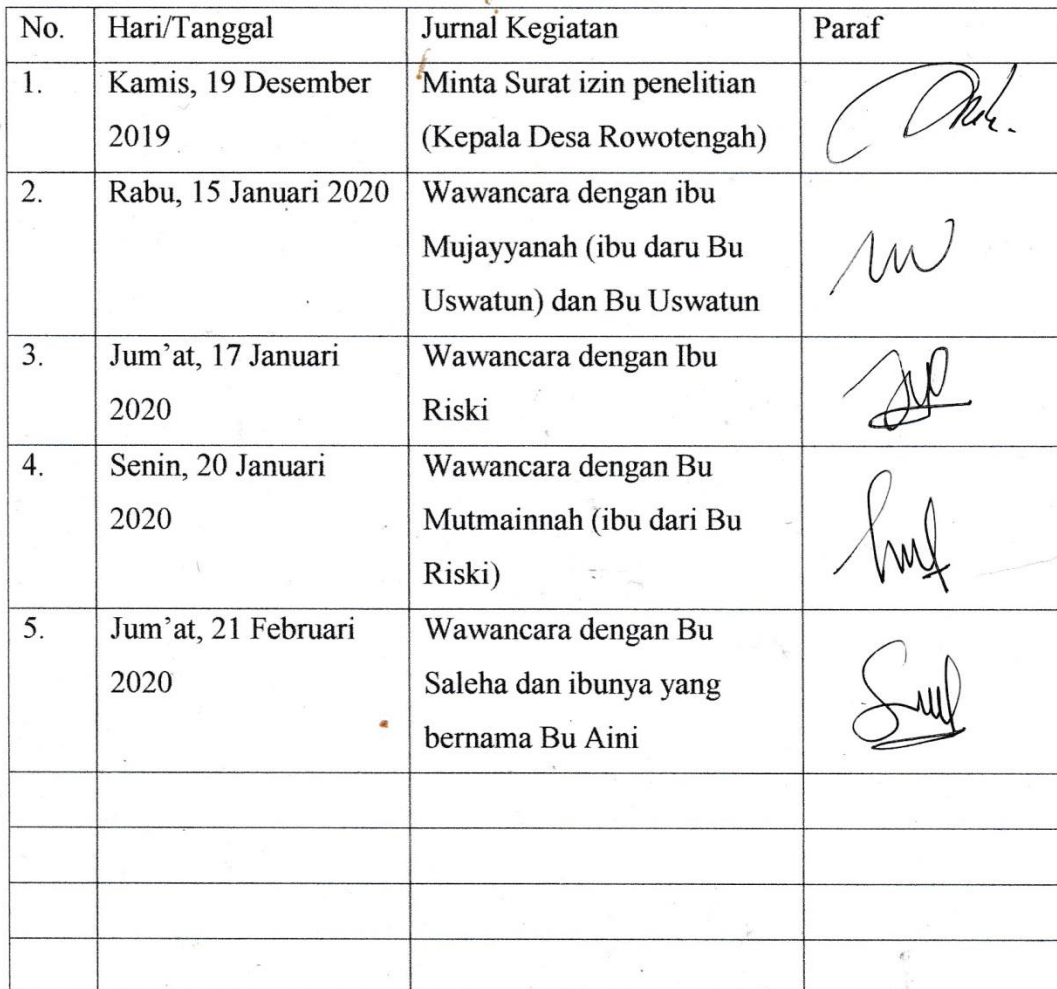 No. Hari/Tanggal Jurnal Kegiatan Paraf
1. Kamis, 19 Desember Minta Surat izin penelitian
2019 (Kepala Desa Rowotengah)
2. Rabu, 15 Januari 2020 Wawancara dengan ibu
Mujayyanah (ibu daru Bu
Uswatun) dan Bu Uswatun
3. Jum’at, 17 Januari Wawancara dengan Ibu
2020 Riski
4. Senin, 20 Januari Wawancara dengan Bu
2020 Mutmainnah (ibu dari Bu
Riski)
5. Jum’at, 21 Februari Wawancara dengan Bu
2020 Saleha dan ibunya yang
bernama Bu Aini